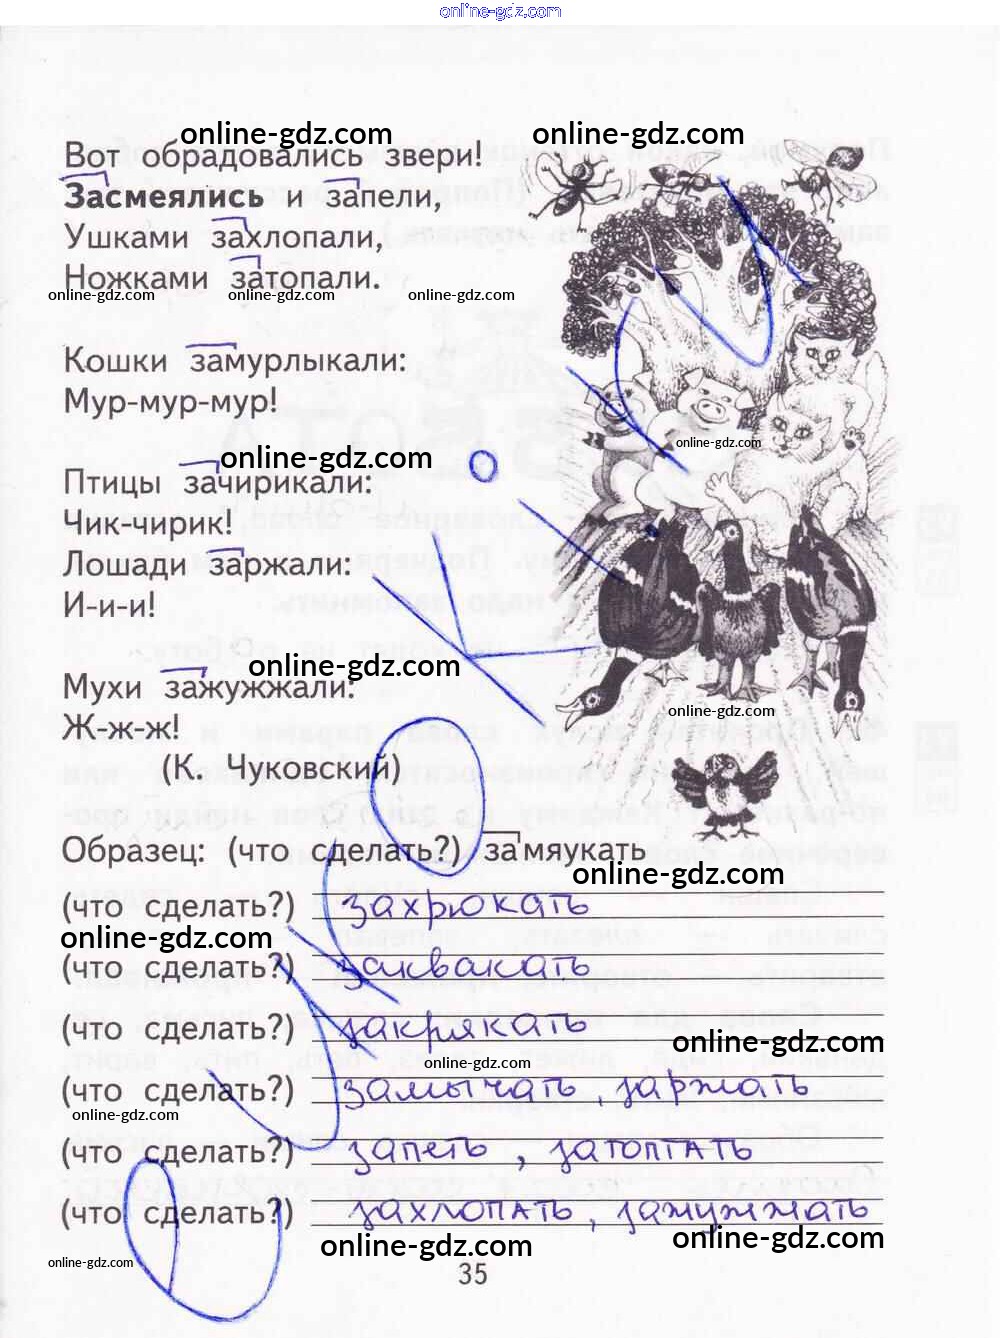 online-gdz.com
online-gdz.com online-gdz.com
Вот обрадовались звери!
Засмеялись и запели,
Ушками захлопали,
Ножками затопали.
online-gdz.com online-gdz.com online-gdz.com
Кошки замурлыкали:
Мур-мур-мур!
online-gdz.com
online-gdz.com
Птицы зачирикали:
Чик-чирик!
Лошади заржали:
И-и-и!
online-gdz.com
Мухи зажужжали:
online-gdz.com
Ж-ж-ж!
(К. Чуковский)
Образец: (что сделать?) замяукать
online-gdz.com
(что сделать?) захрюкать
online-gdz.com
(что сделать?) заквакать
(что сделать?) закрякать
online-gdz.com
online-gdz.com
(что сделать?) замычать, заржать
online-gdz.com
(что сделать?) запеть, затоптать
(что сделать?) захлопать, зажужжать
online-gdz.com online-gdz.com
online-gdz.com
35